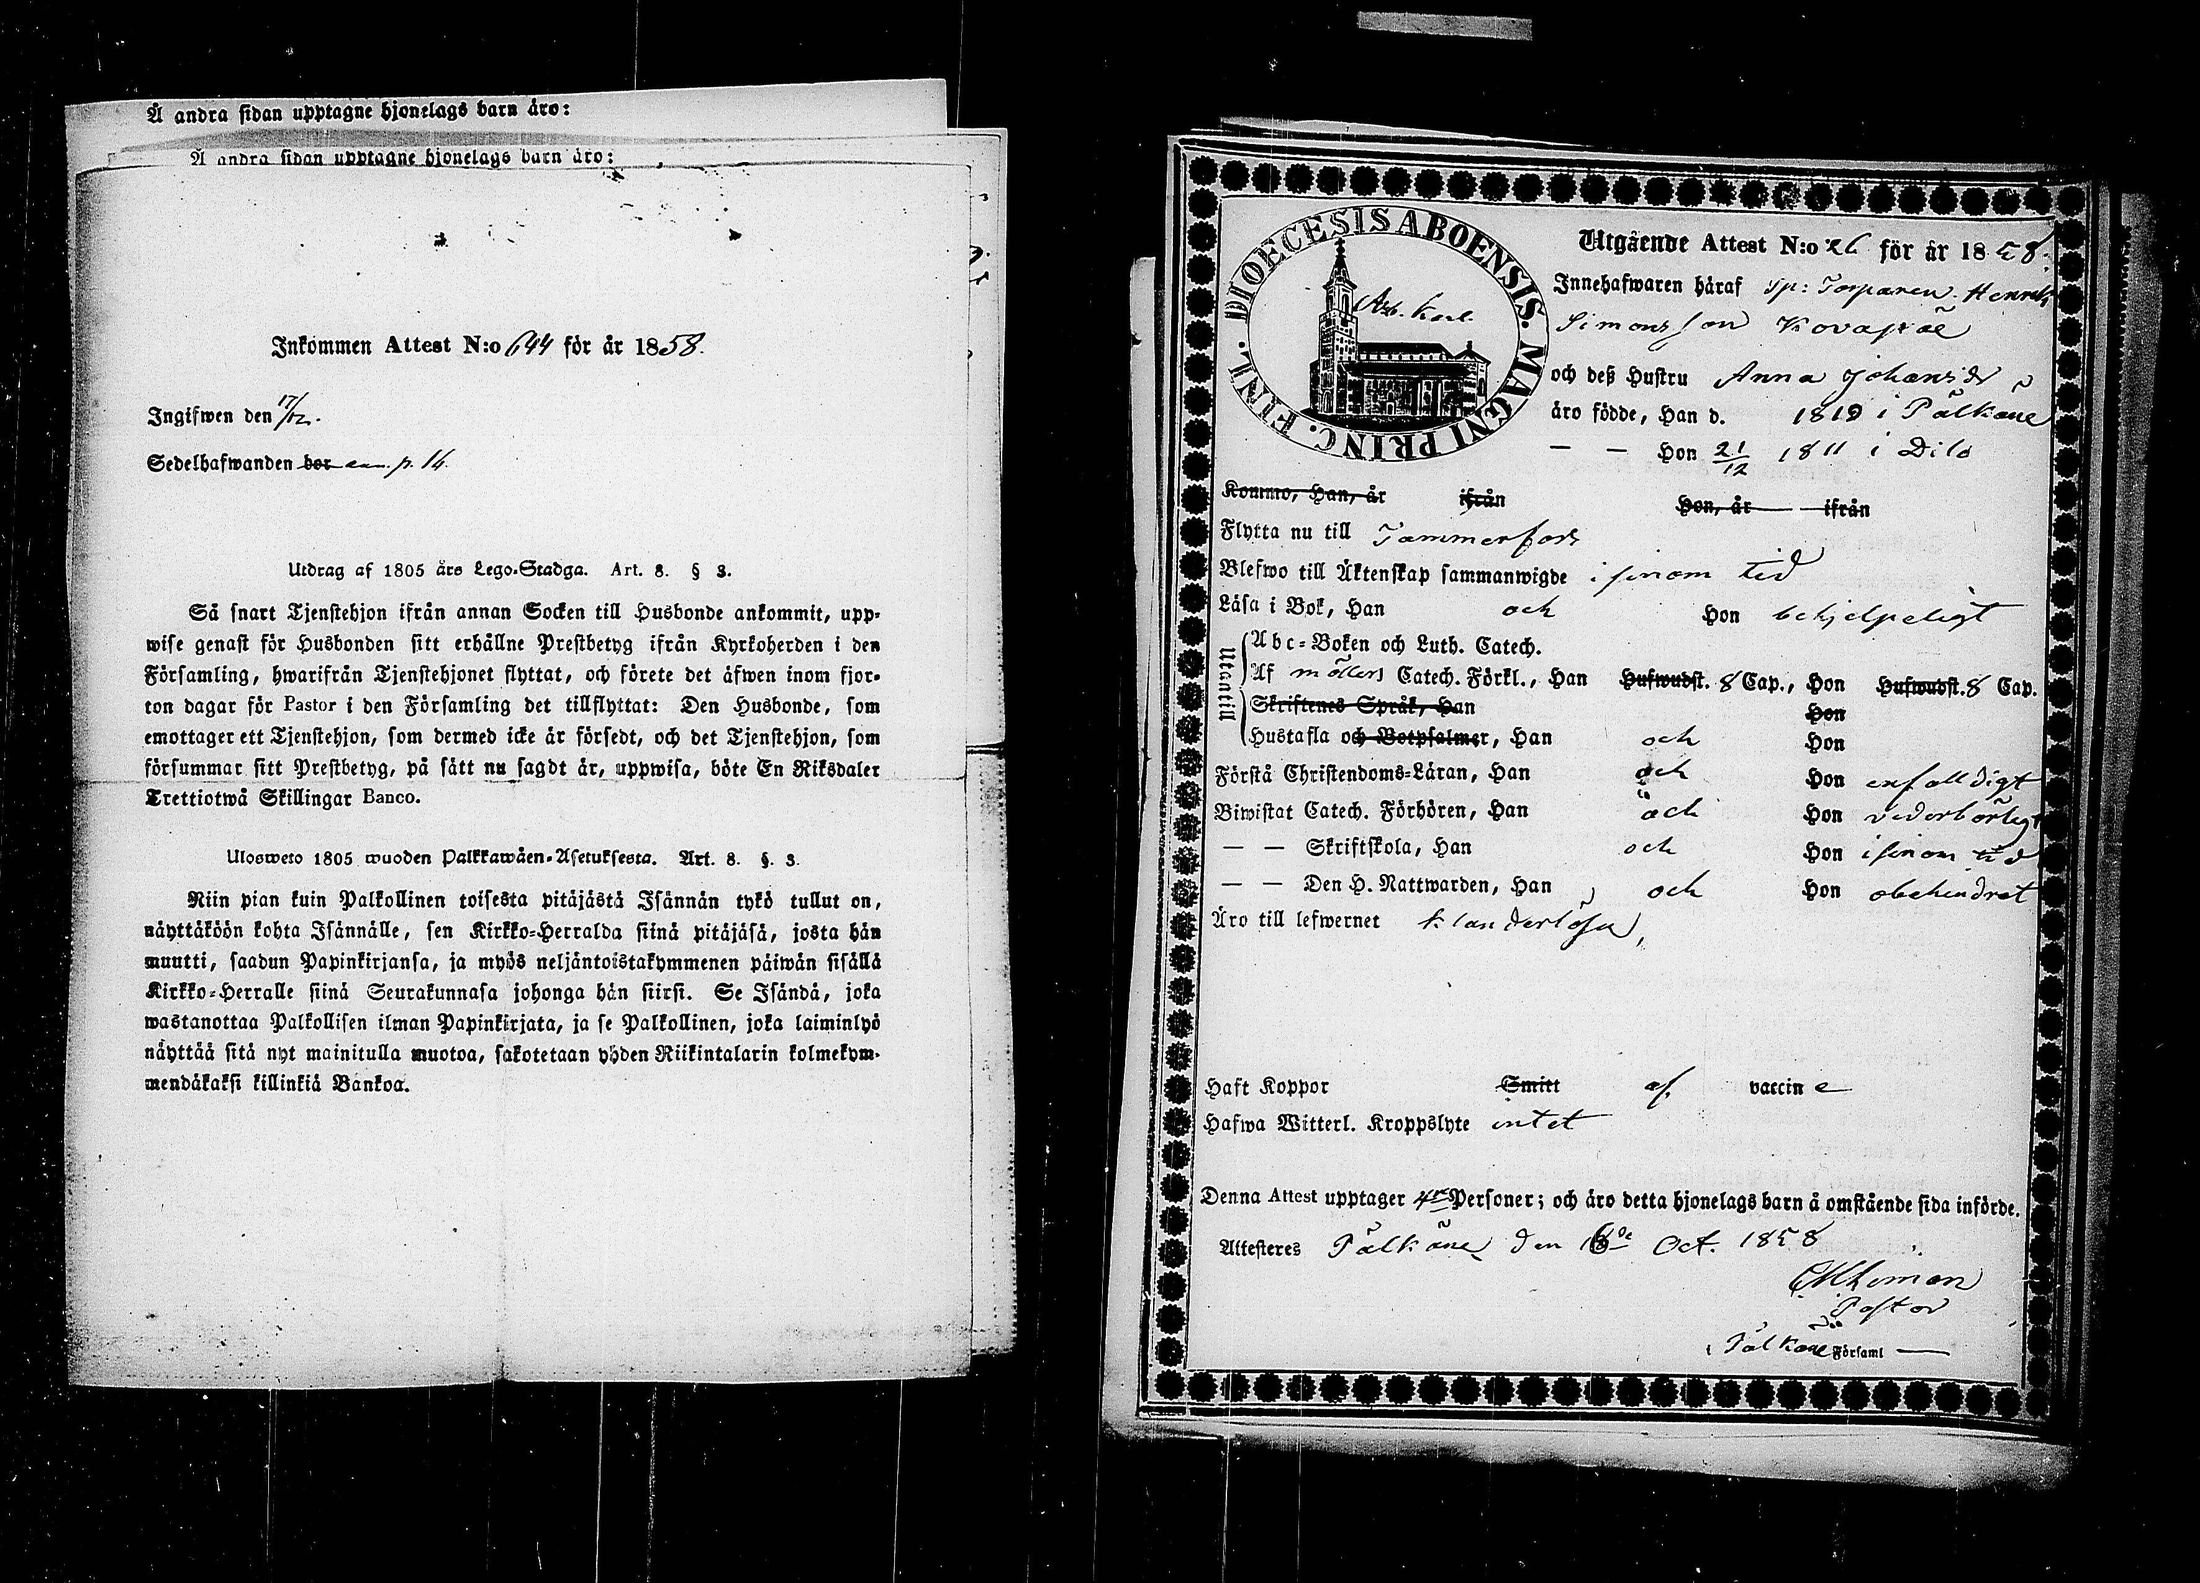 Å andra sidan upptagne hjonelags barn äro:
Å andra sidan upptagne hjonelags barn äro:
Inkommen Attest N:o 644 för år 1858.
Ingifwen den 17/12.
Sedelhafwanden bor ann. p. 14.
Utdrag af 1805 års Lego-Stadga. Art. 8. § 3.
Så snart Tjenstehjon ifrån annan Socken till Husbonde ankommit, upp-
wise genast för Husbonden sitt erhållne Prestbetyg ifrån Kyrkoherden i den
Församling, hwarifrån Tjenstehjonet flyttat, och förete det äfwen inom fjor-
ton dagar för Pastor i den Församling det tillflyttat: Den Husbonde, som
emottager ett Tjenstehjon, som dermed icke är försedt, och det Tjenstehjon, som
försummar sitt Prestbetyg, på sätt nu sagdt är, uppwisa, böte En Riksdaler
Trettiotwå Skillingar Banco.
Ulosweto 1805 wuoden Palkkawäen-Asetuksesta. Art. 8. §. 3.
Niin pian kuin Palkollinen toisesta pitäjästä Isännän tykö tullut on,
näyttäköön kohta Isännälle, sen Kirkko-Herralda siinä pitäjäsä, josta hän
muutti, saadun Papinkirjansa, ja myös neljäntoistakymmenen päiwän sisällä
Kirkko-Herralle siinä Seurakunnasa johonga hän siirsi. Se Isändä, joka
wastanottaa Palkollisen ilman Papinkirjata, ja se Palkollinen, joka laiminlyö
näyttää sitä nyt mainitulla muotoa, sakotetaan yhden Riikintalarin kolmekym-
mendäkaksi killinkiä Bankoa.
DIOECESIS ABOENSIS. MAGNI PRINC. FINL.
Arb. karl.
Utgående Attest N:o 26 för år 1858.
Innehafwaren häraf sp: Torparen Henrik
Simonsson Kovapää
och deß Hustru Anna Johansdr
äro födde, Han d. 1819 i Pälkäne
— — Hon 21/12 1811 i Dito
Kommo, Han, år ifrån Hon, år ifrån
Flytta nu till Tammerfors
Blefwo till Äktenskap sammanwigde i sinom tid
Läsa i Bok, Han och Hon behjelpeligt
Utantill
Abc-Boken och Luth. Catech.
Af möllers Catech. Förkl., Han Hufwudst. 8 Cap., Hon Hufwudst. 8 Cap.
Skriftenes Språk, Han Hon
Hustafla och Botpsalmer, Han och Hon
Förstå Christendoms-Läran, Han och Hon enfalldigt
Biwistat Catech. Förhören, Han och Hon vederbörligt
— — Skriftskola, Han och Hon i sinom tid
— — Den H. Nattwarden, Han och Hon obehindrat
Äro till lefwernet klanderlösa,
Haft Koppor Smitt af vaccine
Hafwa Witterl. Kroppslyte intet
Denna Attest upptager 4ra Personer; och äro detta hjonelags barn å omstående sida införde.
Attesteres Pälkäne den 16de Oct. 1858
Pastor
i Pälkäne Församl —